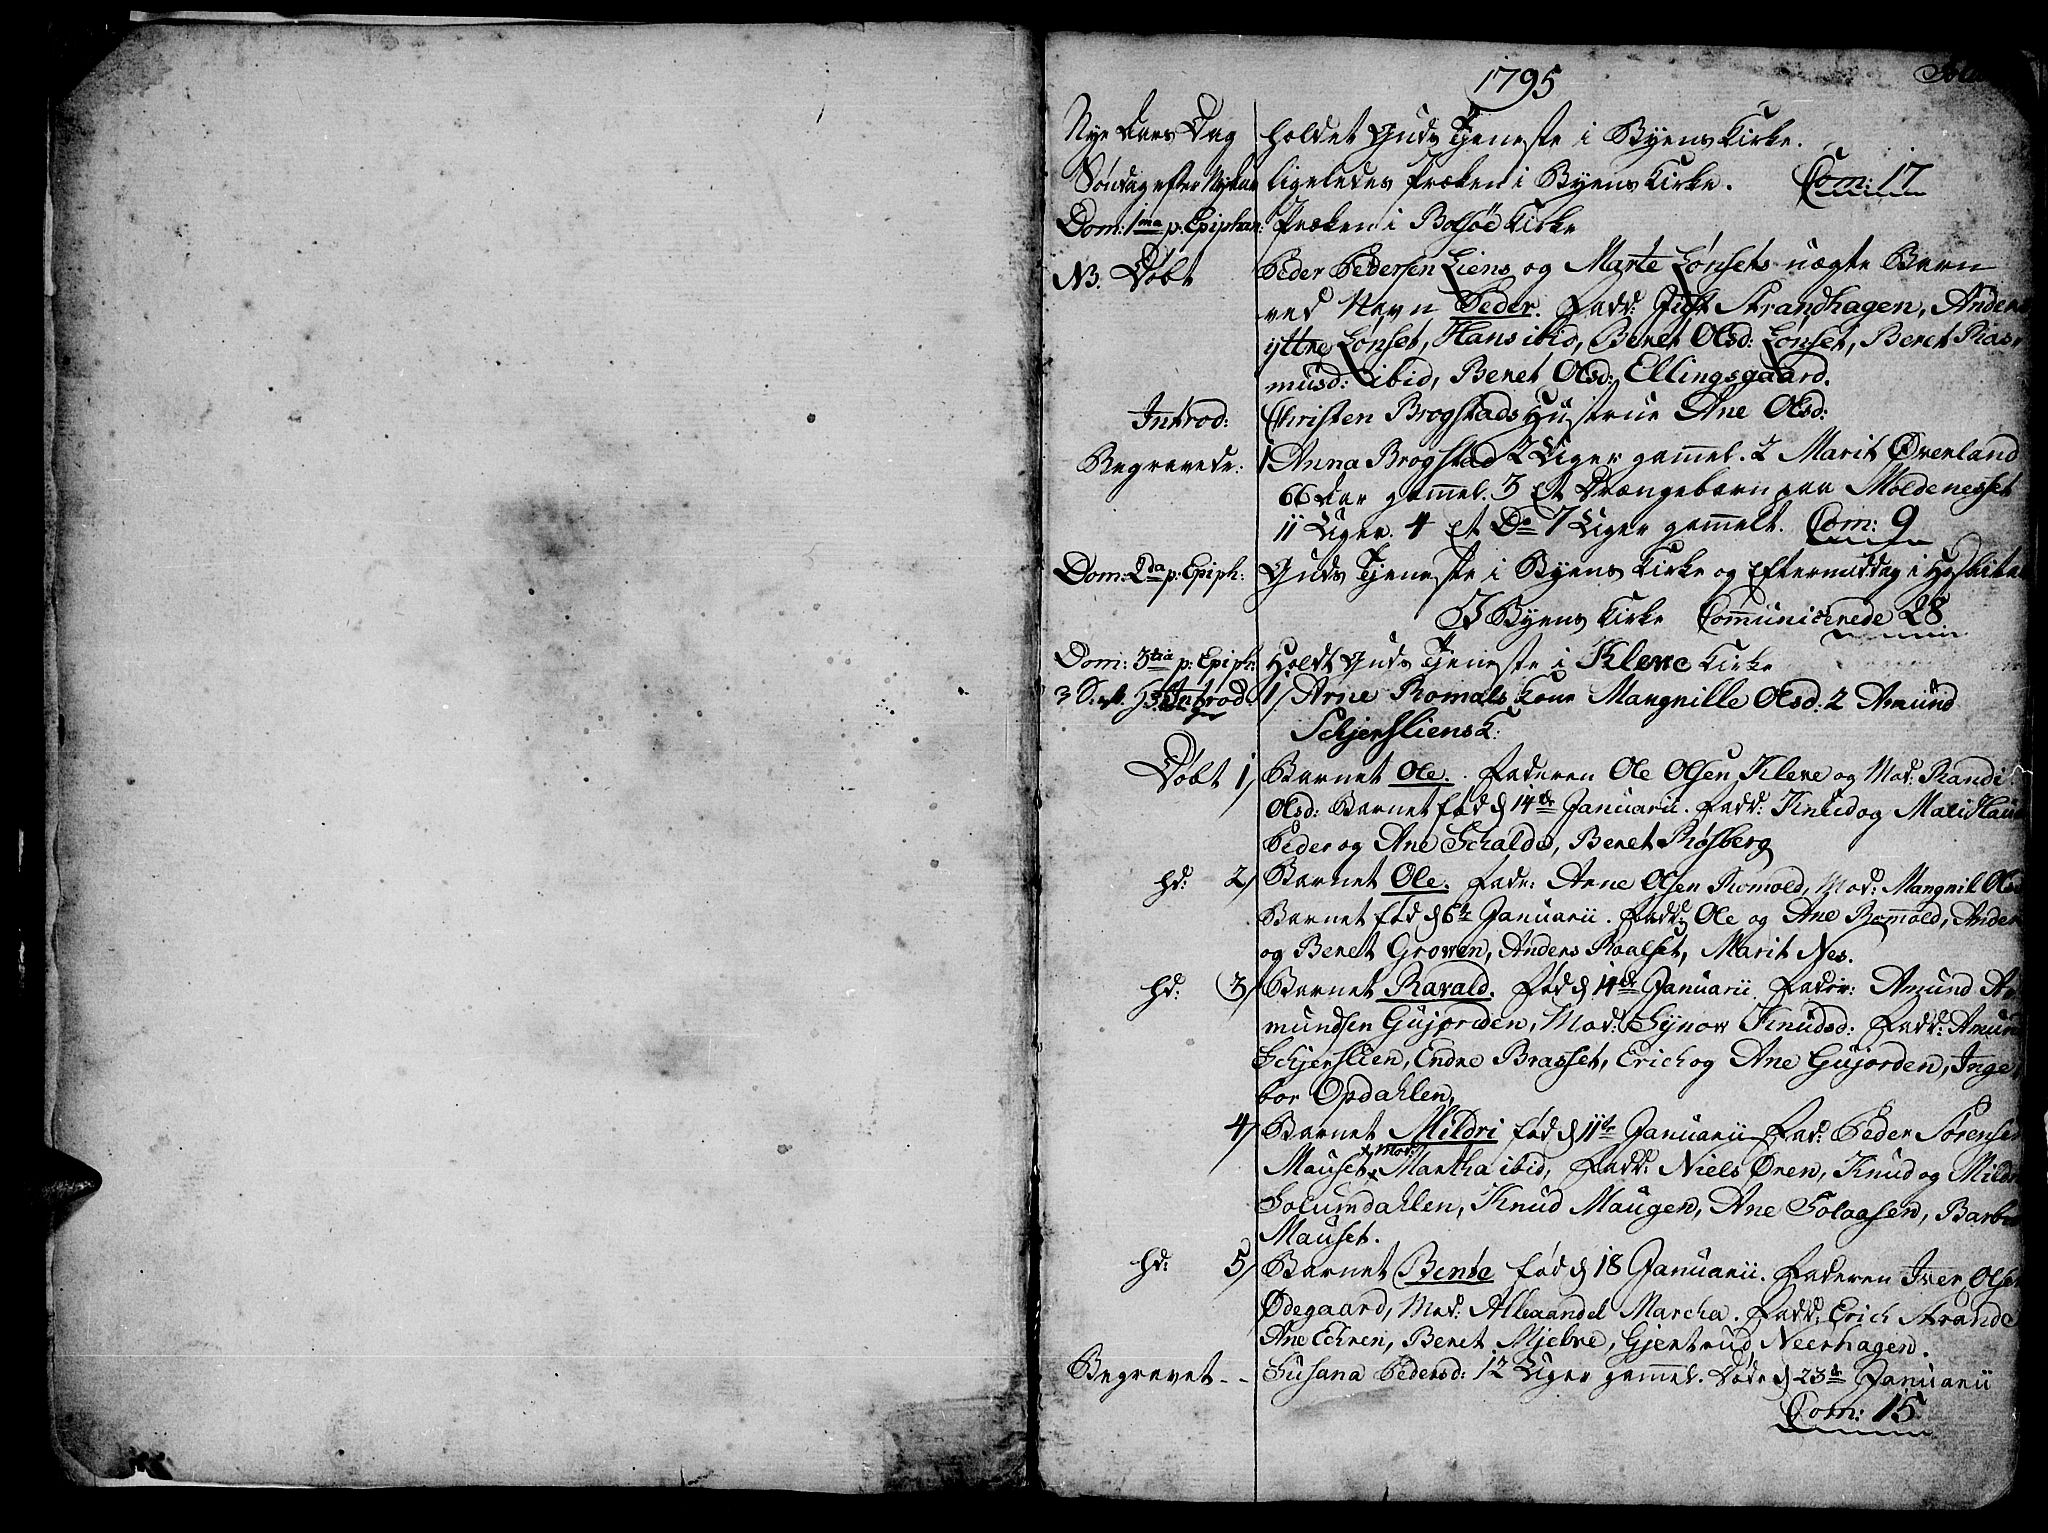 1795
Nye Aars Dag holdet Guds Tjeneste i Byens Kirke.
Søndag efter Nytaar ligeledes Præken i Byens Kirke. Com: 17
Dom: 1ma p: Epiphan: Præken i Bolsøe Kirke
NB. Døbt Peder Pedersen Liens og Marte Lønsets uægte Barn
ved Navn Peder. Fadd: Strandhagen, Anders
yttre Lønset, Hans ibid, Beret Olsd: Lønset, Beret Ras-
musd: ibid, Beret Olsd: Ellingsgaard.
Introd: Christen Brogstads Hustrue Ane Olsd:
Begravede: 1 Anna Brogstad 2 Uger gammel. 2 Marit Øverland
66 Aar gammel. 3 Et Drængebarn paa Moldenesset
11 Uger. 4 Et Do 7 Uger gammelt. Com: 9
Dom: 2da p: Epiph: Guds Tjeneste i Byens Kirke og Eftermiddag i Hospitalet
I Byens Kirke Communicerede 28
Dom: 3tia p: Epiph: Holdt Guds Tjeneste i Kleve Kirke
3 S. Introd 1/ Arne Romals Kone Mangnille Olsd: 2 Amund
Schjersliens K:
Døbt 1/ Barnet Ole. Faderen Ole Olsen Kleve og Mod: Randi
Olsd: Barnet fød d 14de Januarii. Fadd: Knud og Malid
Peder og Ane Schalde, Beret Røsberg
hd: 2/ Barnet Ole. Fader: Arne Olsen Romold, Mod: Mangnil Olsd
Barnet fød d 6te Januarii. Fadd: Ole og Ane Romold, Anders
og Beret Groven, Anders Roalset, Marit Nes.
hd: 3/ Barnet Ravald. Fød d 14de Januarii Fader: Amund A
mundsen Gujorden, Mod: Synov Knudsd: Fadd: Amund
Schjerslien, Endre Brasset, Erich og Ane Gujorden, Inge
bor Opdahlen,
4/ Barnet Mildri fød d 11te Januarii Fad: Peder Sørensen
Mauset, Mod: Martha ibid, Fadd: Niels Øren, Knud og Mildri
Solumdahlen, Knud Maugen, Ane Solaasen, Barbro
Mauset.
hd: 5/ Barnet Bente fød d 18 Januarii. Faderen Iver Olsen
Ødegaard, Mod: Marcha. Fadd: Erich Strande
Ane Echren, Beret Mjelve, Gjertrud Neerhagen.
Begravet - - Susana Pedersd: 12 Uger gammel. Døde d 23de Januarii
Com: 15